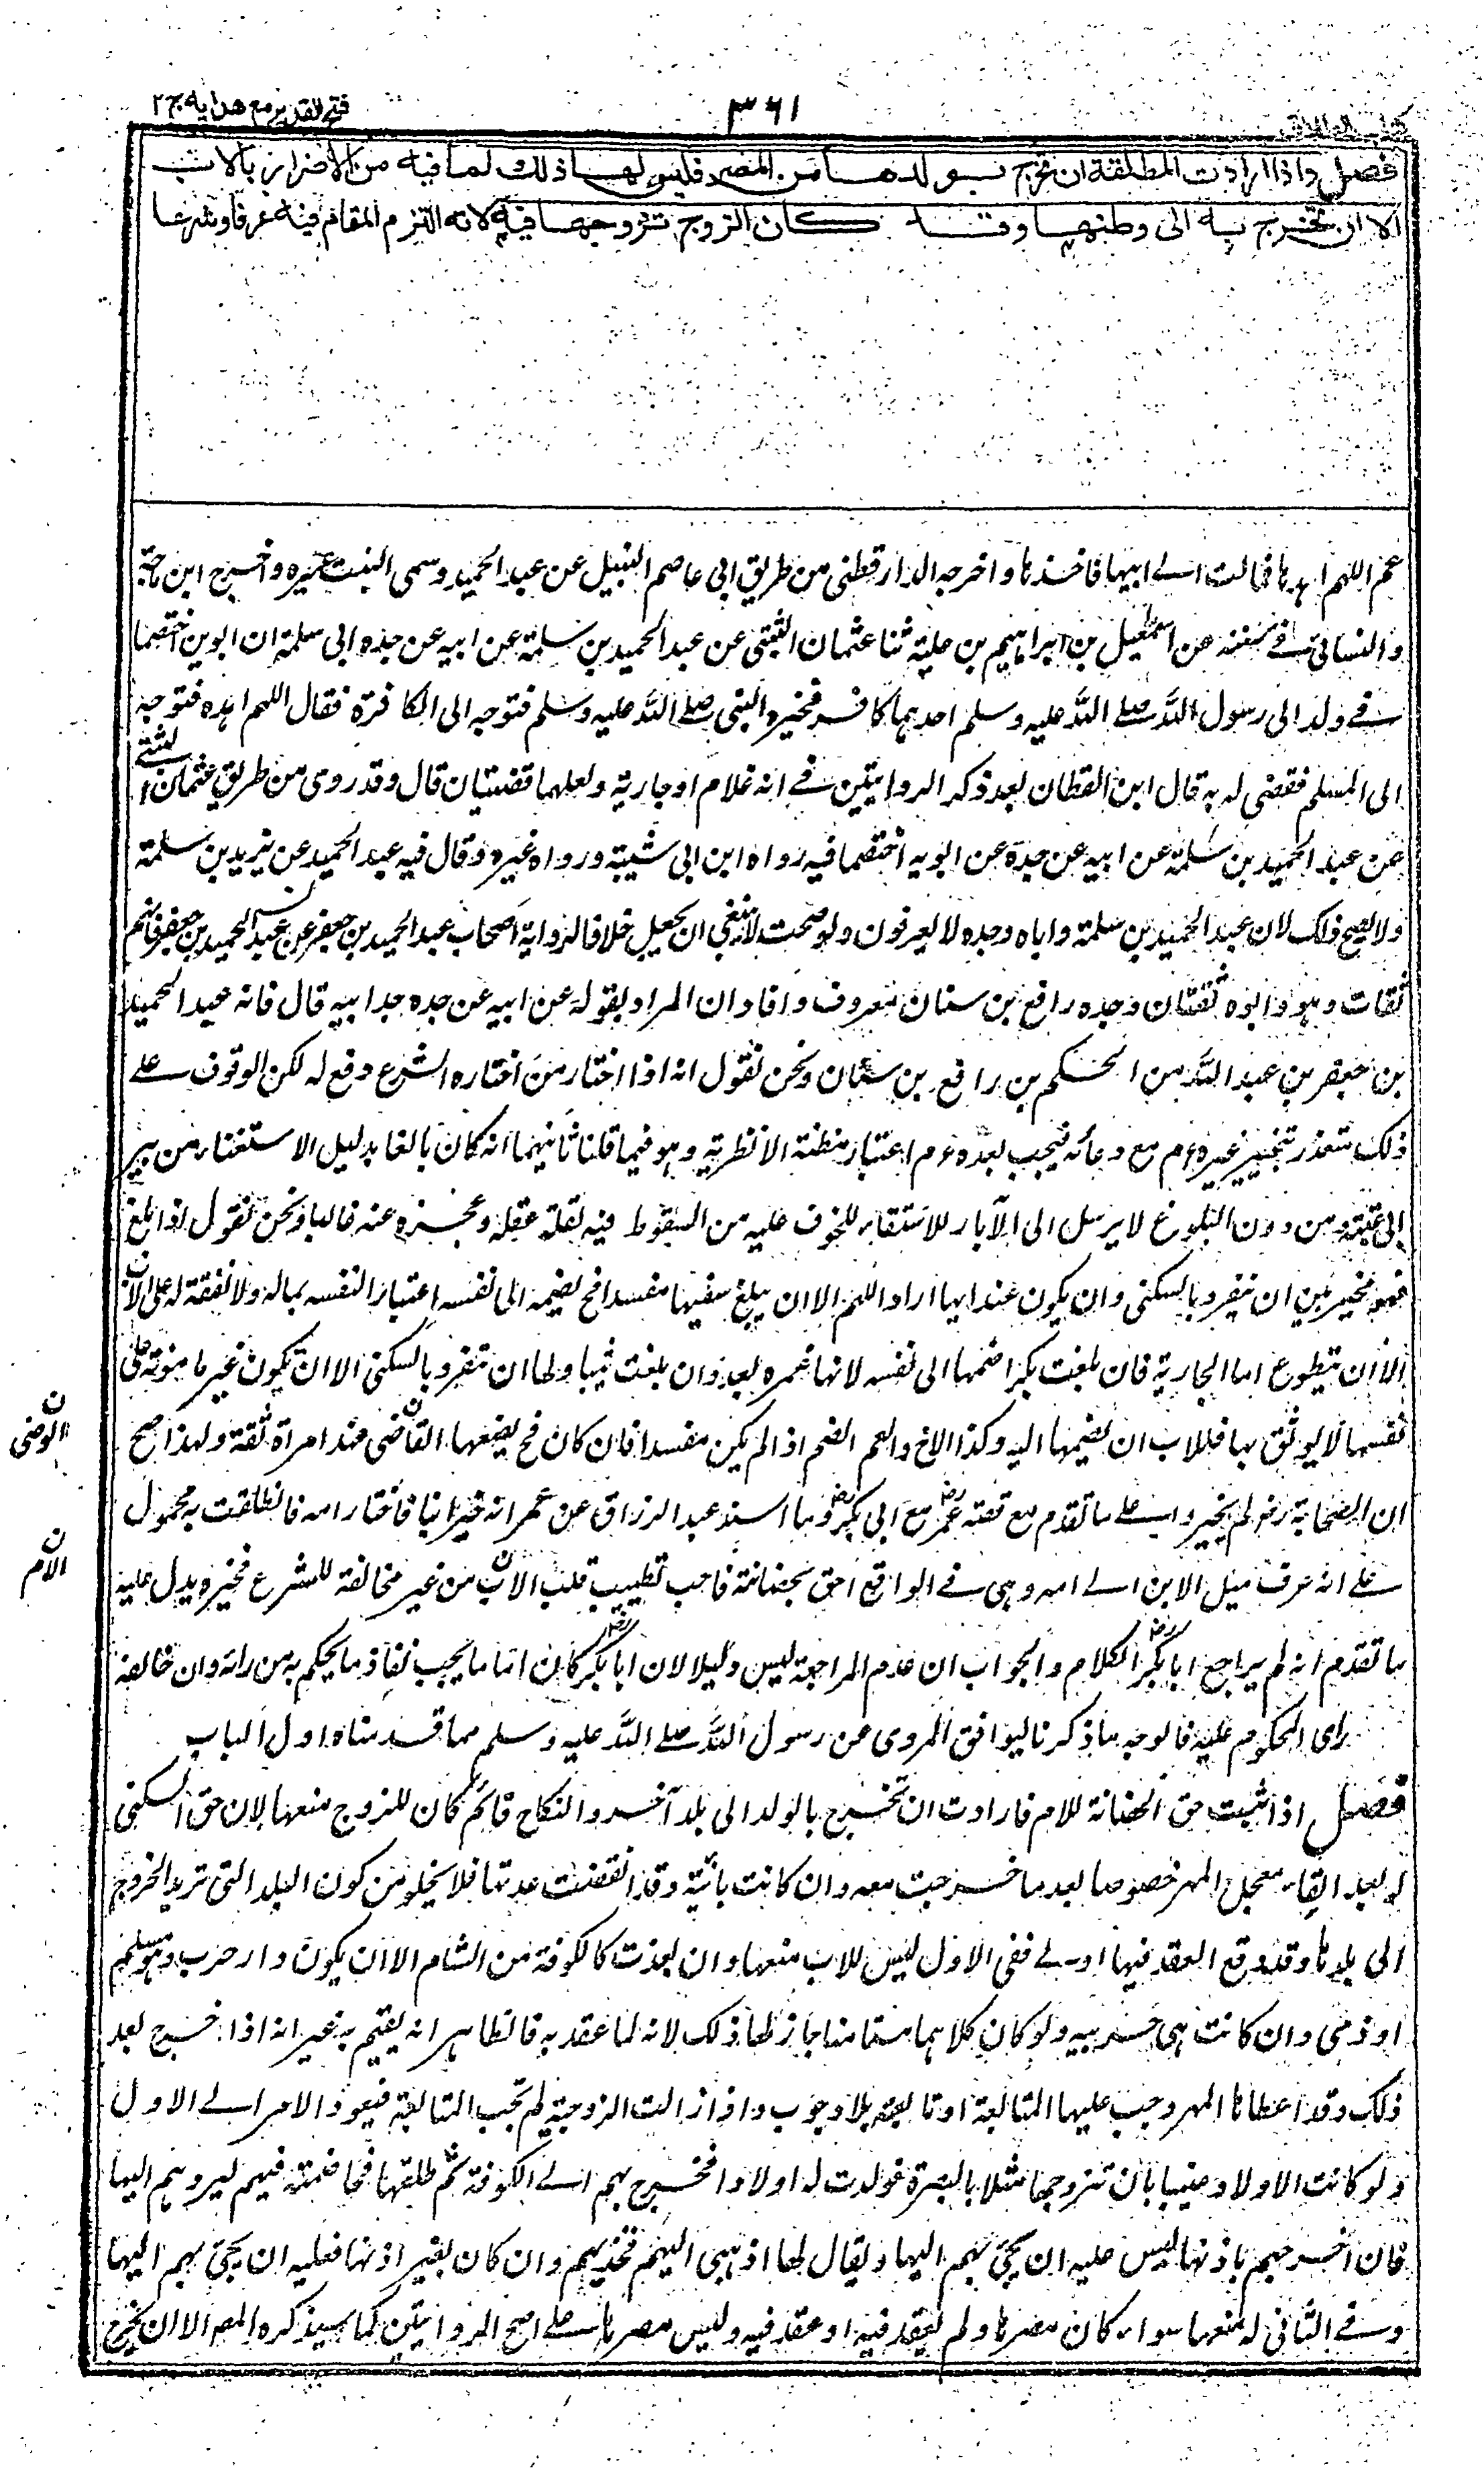 كتاب الطلاق
٣٦١
فتح القدير مع هدايه ج ٢
فصل واذا ارادت المطلقة ان تخرج بولدها من المصر فليس لها ذلك لما فيه من الاضرار بالاب
الا ان تخرج به الى وطنها وقد كان الزوج تزوجها فيه لانه التزم المقام فيه عرفا وشرعا
عم اللهم اهدها فمالت الى ابيها فاخذها واخرجه الدارقطنى من طريق ابى عاصم النبيل عن عبد الحميد وسمى البنت عميره واخرج ابن ماجة
والنسائى فى سننه عن اسمعيل بن ابراهيم بن علية ثنا عثمان البتى عن عبد الحميد بن سلمة عن ابيه عن جده ابى سلمة ان ابوين اختصما
فى ولد الى رسول الله صلى الله عليه وسلم احدهما كافر فخيره النبى صلى الله عليه وسلم فتوجه الى الكافرة فقال اللهم اهده فتوجه
الى المسلم فقضى له به قال ابن القطان بعد ذكر الروايتين فى انه غلام او جارية ولعلهما قضيتان قال وقد روى من طريق عثمان البتى
عن عبد الحميد بن سلمة عن ابيه عن جده عن ابويه اختصما فيه رواه ابن ابى شيبة ورواه غيره وقال فيه عبد الحميد عن يزيد بن سلمة
ولا يصح ذلك لان عبد الحميد بن سلمة واباه وجده لا يعرفون ولو صحت لا ينبغى ان يجعل خلافا لرواية اصحاب عبد الحميد بن جعفر عن عبد الحميد بن جعفر فانهم
ثقات وهو وابوه ثقتان وجده رافع بن سنان معروف وافاد ان المراد بقوله عن ابيه عن جده جد ابيه قال فانه عبد الحميد
بن جعفر بن عبد الله بن الحكم بن رافع بن سنان ونحن نقول انه اذا اختار من اختاره الشرع دفع له لكن الوقوف على
ذلك متعذر تخيير غيره عم مع دعائه فيجب بعده عم اعتبار مظنة الانظرية وهو فيما قلنا ثانيهما انه كان بالغا بدليل الاستغناء من بير
ابى عتبة ومن دون البلوغ لا يرسل الى الآبار للاستقاء للخوف عليه من السقوط فيه لقلة عقله وعجزه عنه غالبا ونحن نقول اذا بلغ
فهو مخير بين ان ينفرد بالسكنى وان يكون عند ايها اراد اللهم الا ان يبلغ سفيها مفسدا فح يضمه الى نفسه اعتبارا لنفسه بماله ولا نفقة له على الاب
الا ان يتطوع اما الجارية فان بلغت بكرا ضمها الى نفسه لانها غمره بعد وان بلغت ثيبا ولها ان تنفرد بالسكنى الا ان تكون غير مامونة على
نفسها لا يوثق بها فللاب ان يضمها اليه وكذا الاخ والعم الضم اذا لم يكن مفسدا فان كان فح يضعها القاضى عند امراة ثقة ولهذا صح
ان الصحابة رض لم يخيروا على ما تقدم مع قصة عمر رض مع ابى بكر رض وما اسند عبد الرزاق عن عمر انه خير ابنا فاختار امه فانطلقت به محمول
على انه عرف ميل الابن الى امه وهى فى الواقع احق بحضانته فاحب تطييب قلب الاب من غير مخالفة للشرع فخيره يدل عليه
ما تقدم انه لم يراجع ابا بكر رض الكلام والجواب ان عدم المراجعة ليس دليلا لان ابا بكر رض كان اماما يجب نفاذ ما يحكم به من رايه وان خالف
راى المحكوم عليه فالوجه ما ذكرنا ليوافق المروى عن رسول الله صلى الله عليه وسلم مما قدمناه اول الباب
فصل اذا ثبت حق الحضانة للام فارادت ان تخرج بالولد الى بلد آخر والنكاح قائم كان للزوج منعها لان حق السكنى
له بعد ايفاء معجل المهر خصوصا بعد ما خرجت معه وان كانت بائنة وقد انقضت عدتها فلا يخلو من كون البلد التى تريد الخروج
الى بلدها وقد وقع العقد فيها او لا ففى الاول ليس للاب منعها وان بعدت كالكوفة من الشام الا ان يكون دار حرب وهو مسلم
او ذمى وان كانت هى حربيه ولو كان كلاهما مستامنا جاز لها ذلك لانه لما عقد به فالظاهر انه يقيم به غير انه اذا خرج بعد
ذلك وقد اعطاها المهر وجب عليها المتابعة او تابعته بلا وجوب واذا زالت الزوجية لم تجب المتابعة فيعود الامر الى الاول
ولو كانت الاولاد معيبا بان تزوجها مثلا بالبصرة فولدت له اولادا فخرج بهم الى الكوفة ثم طلقها فخاصمته فيهم ليردهم اليها
فان اخرجهم باذنها ليس عليه ان يجئ بهم اليها ويقال لها اذهبى اليهم فخذيهم وان كان بغير اذنها فعليه ان يجئ بهم اليها
وفى الثانى له منعها سواء كان مصرها ولم يعقد فيه او عقد فيه وليس مصرها على اصح الروايتين كما سيذكره المصر الا ان تخرج
ن
الوصى
ن
الام